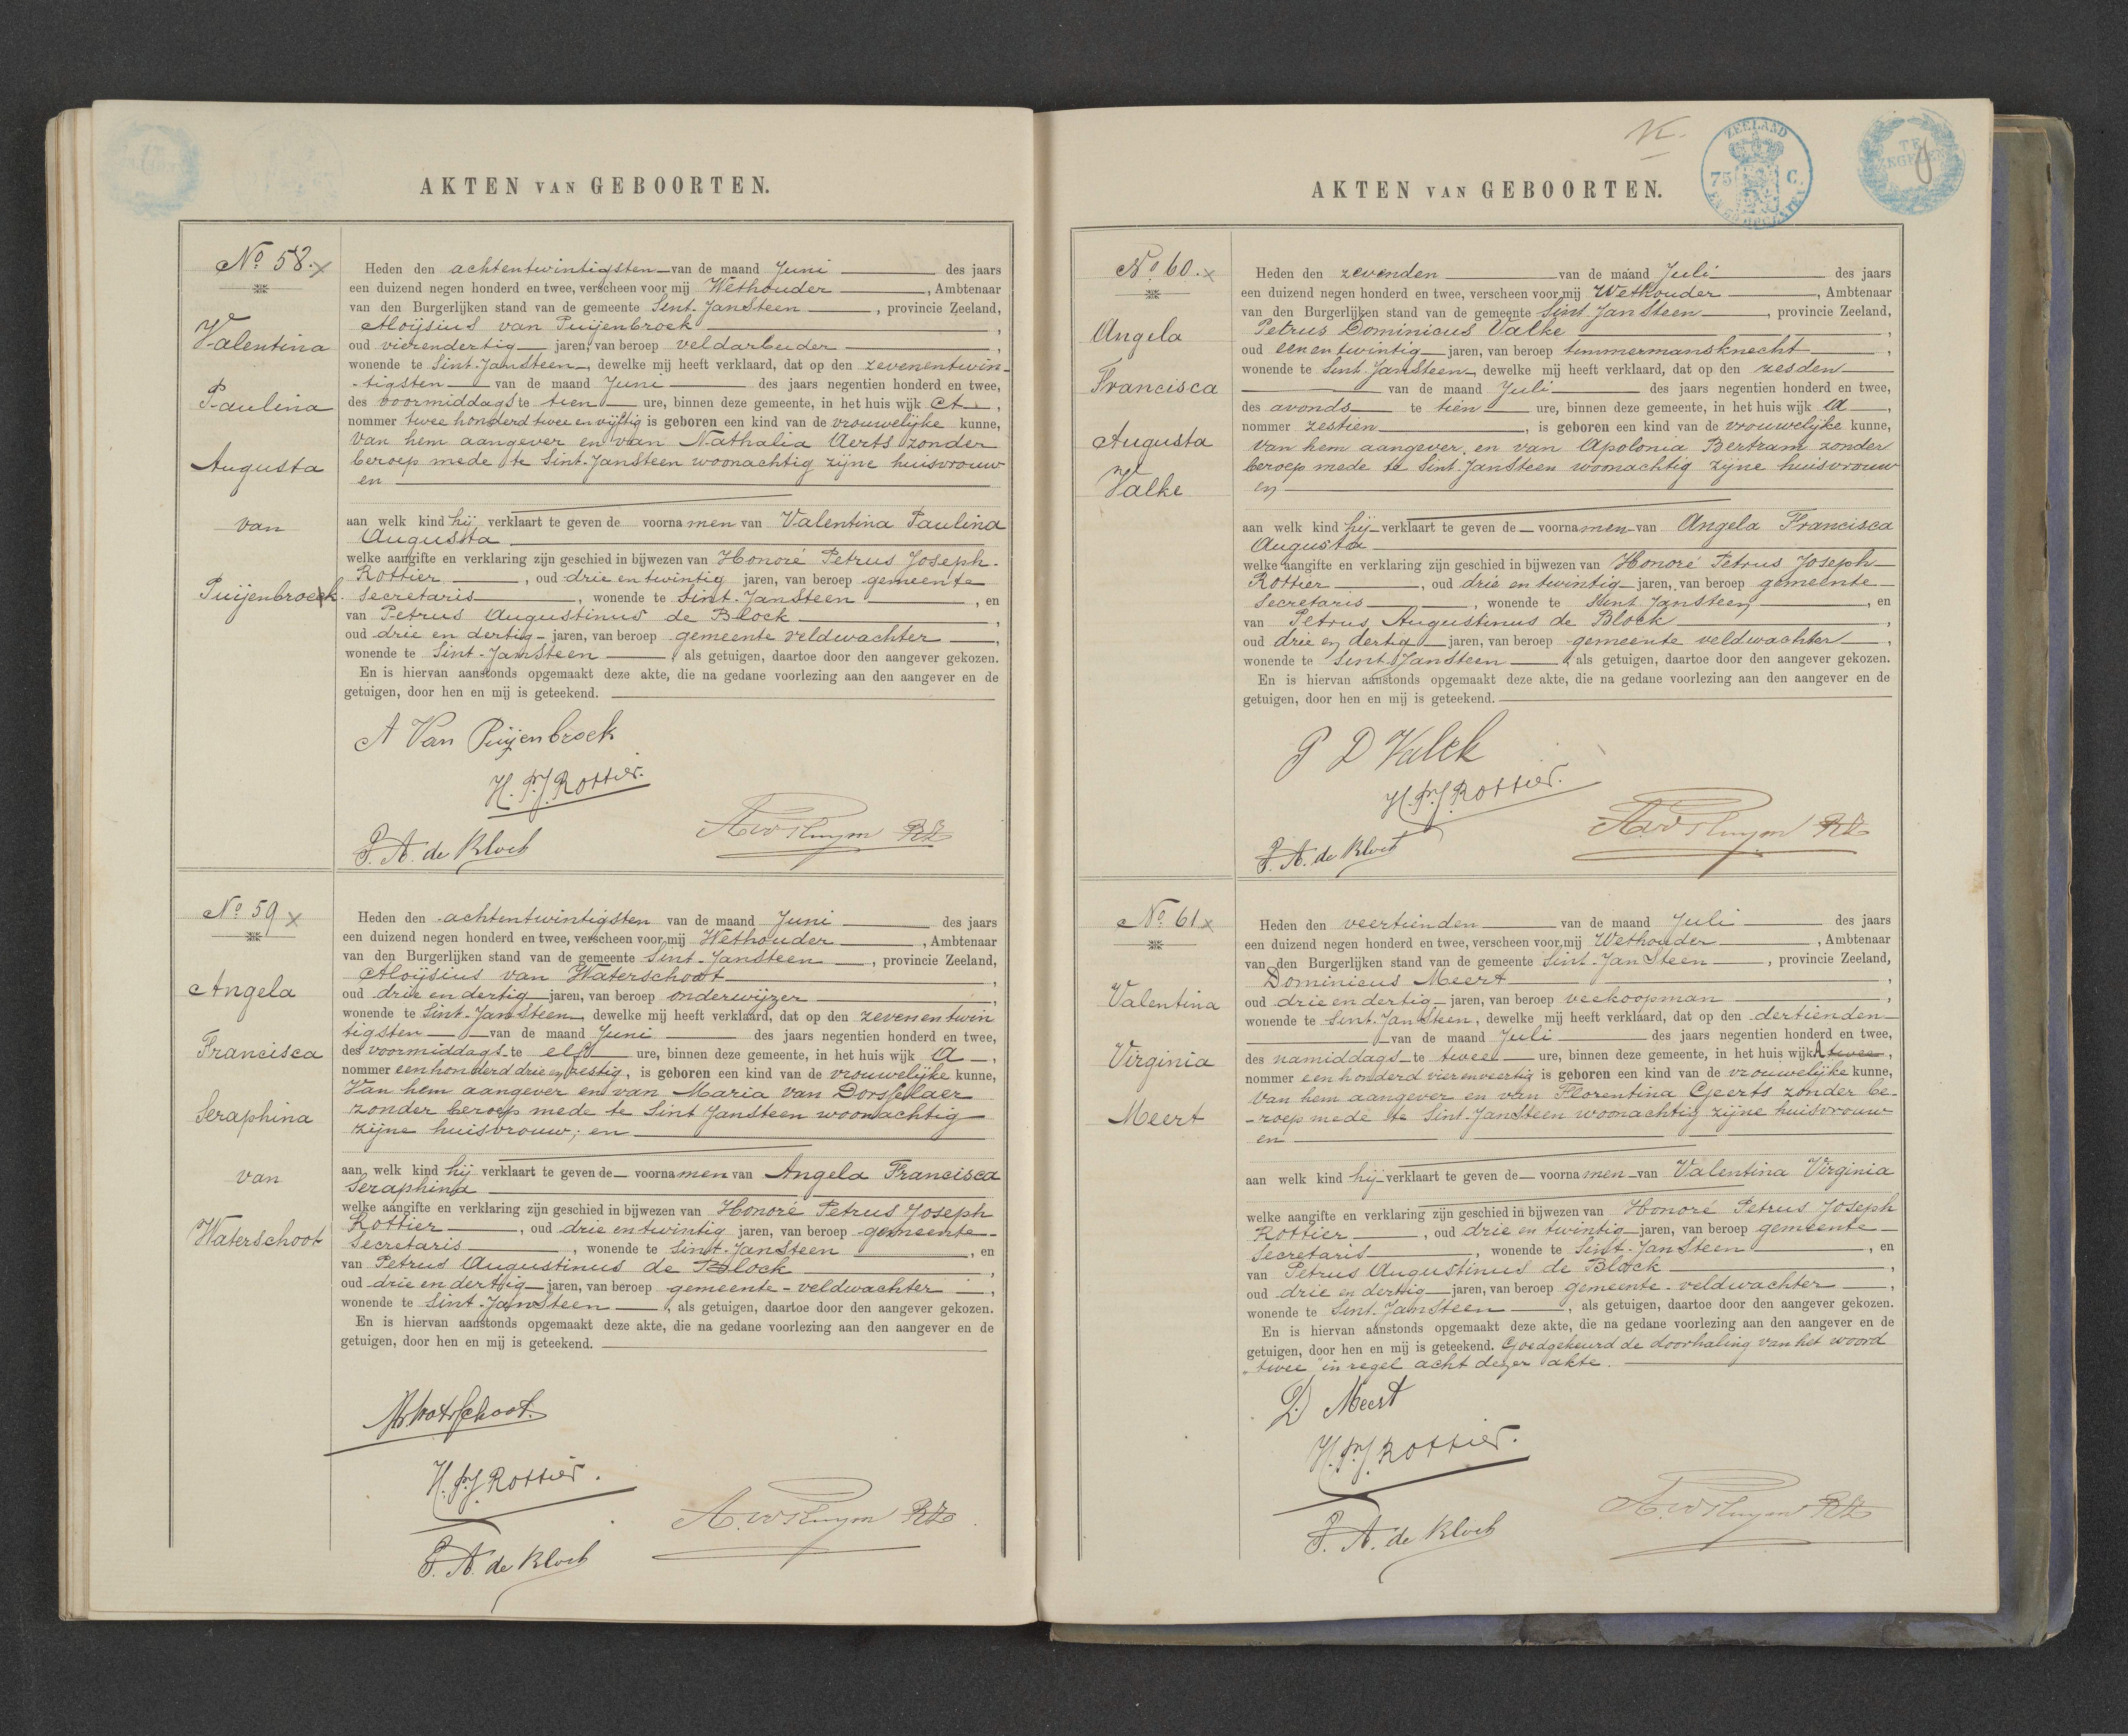 AKTEN VAN GEBOORTEN.
No 58.
Valentina
Paulina
Augusta
van
Puijenbroeck.
Heden den achtentwintigsten van de maand Juni des jaars
een duizend negen honderd en twee, verscheen voor mij Wethouder, Ambtenaar
van den Burgerlijken stand van de gemeente Sint-Jansteen, provincie Zeeland,
Aloijsius van Puijenbroek,
oud vierendertig jaren, van beroep veldarbeider,
wonende te Sint-Jansteen, dewelke mij heeft verklaard, dat op den zevenentwin-
-tigsten van de maand Juni des jaars negentien honderd en twee,
des voormiddags te tien ure, binnen deze gemeente, in het huis wijk A,
nommer twee honderd twee en vijftig is geboren een kind van de vrouwelijke kunne,
van hem aangever en van Nathalia Aerts zonder
beroep mede te Sint-Jansteen woonachtig zijne huisvrouw
en
aan welk kind hij verklaart te geven de voornamen van Valentina Paulina
Augusta
welke aangifte en verklaring zijn geschied in bijwezen van Honoré Petrus Joseph-
Rottier, oud drie en twintig jaren, van beroep gemeente
secretaris, wonende te Sint-Jansteen, en
van Petrus Augustinus de Block,
oud drie en dertig jaren, van beroep gemeente veldwachter,
wonende te Sint-Jansteen, als getuigen, daartoe door den aangever gekozen.
En is hiervan aanstonds opgemaakt deze akte, die na gedane voorlezing aan den aangever en de
getuigen, door hen en mij is geteekend.
A Van Puijenbroek
H.P.J. Rottier.
P.A. de Block
No 59
Angela
Francisca
Seraphina
van
Waterschoot
Heden den achtentwintigsten van de maand Juni des jaars
een duizend negen honderd en twee, verscheen voor mij Wethouder, Ambtenaar
van den Burgerlijken stand van de gemeente Sint-Jansteen, provincie Zeeland,
Aloijsius van Waterschoot,
oud drie en dertig jaren, van beroep onderwijzer,
wonende te Sint-Jansteen, dewelke mij heeft verklaard, dat op den zevenentwin
tigsten van de maand Juni des jaars negentien honderd en twee,
des voormiddags te elf ure, binnen deze gemeente, in het huis wijk A,
nommer een honderd drie en zestig, is geboren een kind van de vrouwelijke kunne,
Van hem aangever en van Maria van Dorsselaer
zonder beroep mede te Sint Jansteen woonachtig
zijne huisvrouw; en
aan welk kind hij verklaart te geven de voornamen van Angela Francisca
Seraphina
welke aangifte en verklaring zijn geschied in bijwezen van Honoré Petrus Joseph
Rottier, oud drie en twintig jaren, van beroep gemeente-
secretaris, wonende te Sint-Jansteen, en
van Petrus Augustinus de Block,
oud drie en dertig jaren, van beroep gemeente-veldwachter,
wonende te Sint-Jansteen, als getuigen, daartoe door den aangever gekozen.
En is hiervan aanstonds opgemaakt deze akte, die na gedane voorlezing aan den aangever en de
getuigen, door hen en mij is geteekend.
H.P.J. Rottier.
P.A. de Block
AKTEN VAN GEBOORTEN.
ZEELAND
75 C.
No 60.
Angela
Francisca
Augusta
Valke
Heden den zevenden van de maand Juli des jaars
een duizend negen honderd en twee, verscheen voor mij Wethouder, Ambtenaar
van den Burgerlijken stand van de gemeente Sint Jansteen, provincie Zeeland,
Petrus Dominicus Valke,
oud een en twintig jaren, van beroep timmermansknecht,
wonende te Sint Jansteen, dewelke mij heeft verklaard, dat op den zesden
van de maand Juli des jaars negentien honderd en twee,
des avonds te tien ure, binnen deze gemeente, in het huis wijk A,
nommer zestien, is geboren een kind van de vrouwelijke kunne,
van hem aangever, en van Apolonia Bertram zonder
beroep mede te Sint-Jansteen woonachtig zijne huisvrouw
en
aan welk kind hij verklaart te geven de voornamen van Angela Francisca
Augusta
welke aangifte en verklaring zijn geschied in bijwezen van Honoré Petrus Joseph
Rottier, oud drie en twintig jaren, van beroep gemeente
secretaris, wonende te Sint Jansteen, en
van Petrus Augustinus de Block,
oud drie en dertig jaren, van beroep gemeente veldwachter,
wonende te Sint Jansteen, als getuigen, daartoe door den aangever gekozen.
En is hiervan aanstonds opgemaakt deze akte, die na gedane voorlezing aan den aangever en de
getuigen, door hen en mij is geteekend.
P D Valck
H.P.J. Rottier.
P.A. de Block
No 61
Valentina
Virginia
Meert
Heden den veertienden van de maand Juli des jaars
een duizend negen honderd en twee, verscheen voor mij Wethouder, Ambtenaar
van den Burgerlijken stand van de gemeente Sint-Jansteen, provincie Zeeland,
Dominicus Meert,
oud drie en dertig jaren, van beroep veekoopman,
wonende te Sint-Jansteen, dewelke mij heeft verklaard, dat op den dertienden
van de maand Juli des jaars negentien honderd en twee,
des namiddags te twee ure, binnen deze gemeente, in het huis wijk A twee,
nommer een honderd vierenveertig is geboren een kind van de vrouwelijke kunne,
van hem aangever en van Florentina Geerts zonder be-
-roep mede te Sint-Jansteen woonachtig zijne huisvrouw
en
aan welk kind hij verklaart te geven de voornamen van Valentina Virginia
welke aangifte en verklaring zijn geschied in bijwezen van Honoré Petrus Joseph
Rottier, oud drie en twintig jaren, van beroep gemeente
secretaris, wonende te Sint-Jansteen, en
van Petrus Augustinus de Block,
oud drie en dertig jaren, van beroep gemeente-veldwachter,
wonende te Sint-Jansteen, als getuigen, daartoe door den aangever gekozen.
En is hiervan aanstonds opgemaakt deze akte, die na gedane voorlezing aan den aangever en de
getuigen, door hen en mij is geteekend. Goedgekeurd de doorhaling van het woord
"twee" in regel acht dezer akte.
D Meert
H.P.J. Rottier.
P.A. de Block